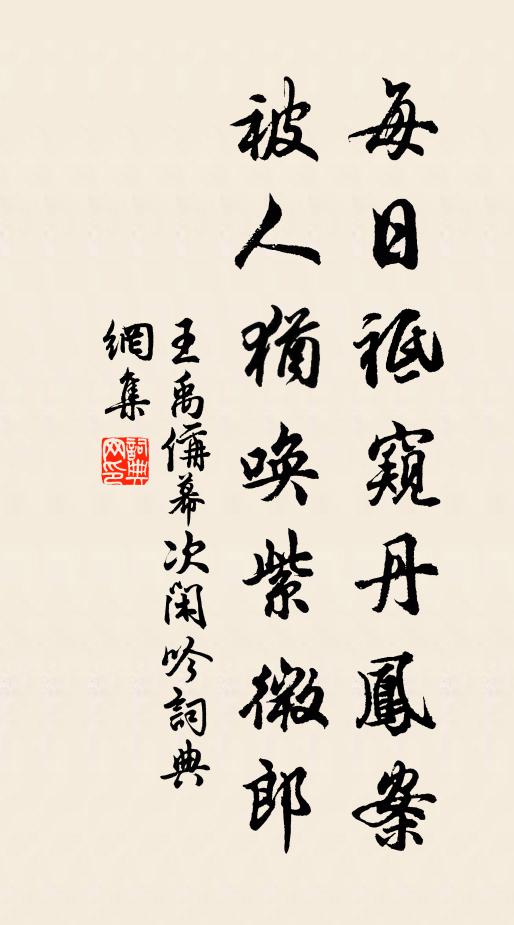 每日祗窺丹鳳案
被人猶喚紫微郎
王禹偁幕次閑吟詞典
網集
詞典網印